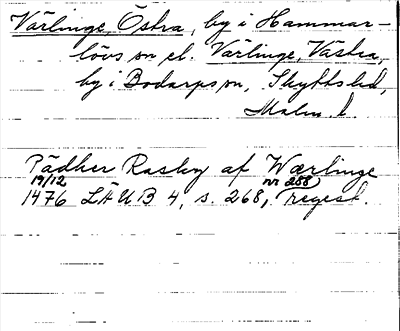 Värlinge, Östra, by i Hammar-
lövs sn el. Värlinge, Västra,
by i Bodarps sn, Skytts hd,
Malm. l
Pädher Rasby af Wærlinge
19/12 nr 258
1476 LÄUB 4, s. 268, regest.